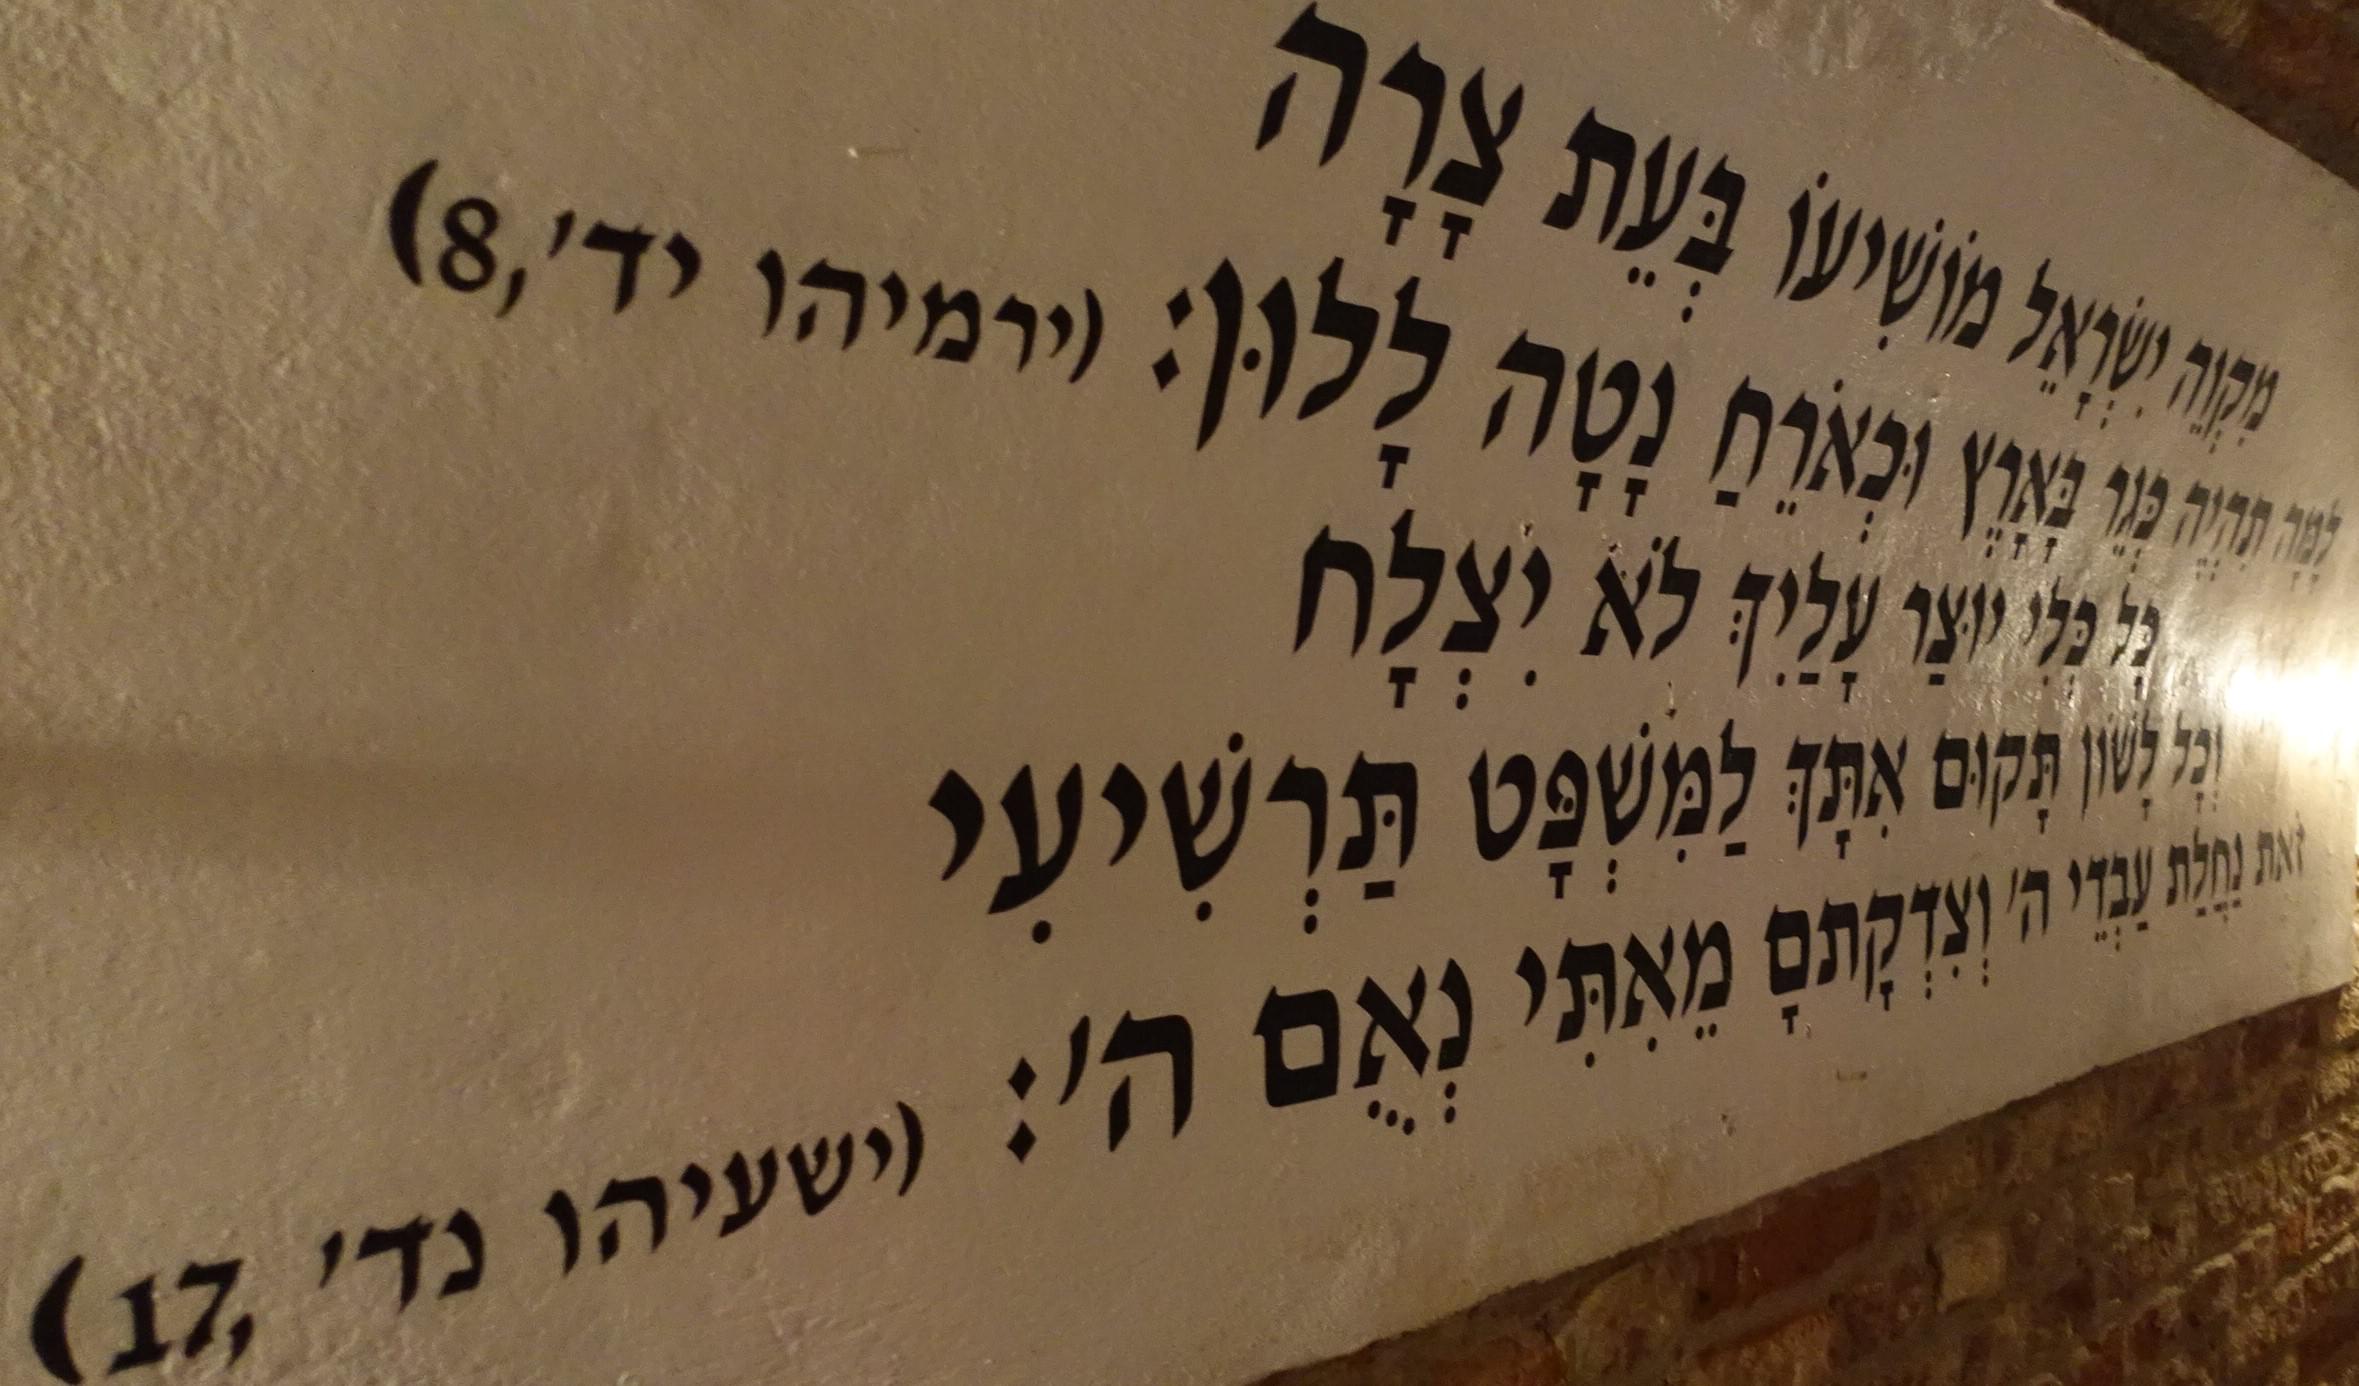 מִקְוֵה יִשְׂרָאֵל מוֹשִׁיעוֹ בְּעֵת צָרָה
לָמָּה תִהְיֶה כְּגֵר בָּאָרֶץ וּכְאֹרֵחַ נָטָה לָלוּן: (ירמיהו יד',8)
כָּל כְּלִי יוּצַר עָלַיִךְ לֹא יִצְלָח
וְכָל לָשׁוֹן תָּקוּם אִתָּךְ לַמִּשְׁפָּט תַּרְשִׁיעִי
זֹאת נַחֲלַת עַבְדֵי ה' וְצִדְקָתםָ מֵאִתִּי נְאֻם ה': (ישעיהו נד' ,17)